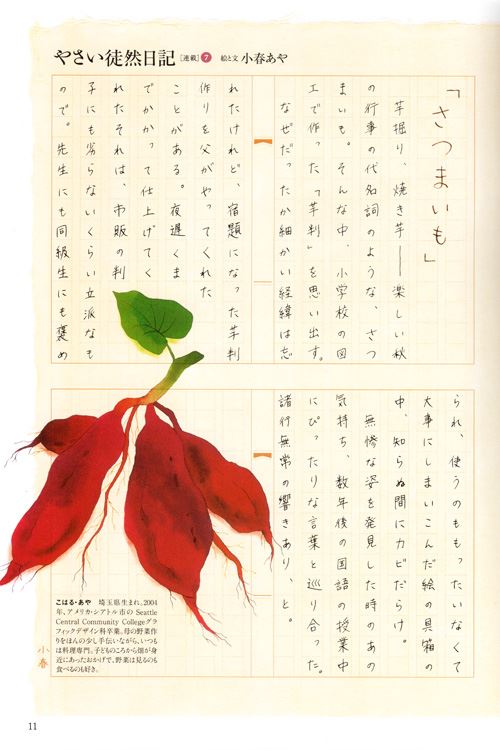 やさい徒然日記 [連載] 7 絵と文 小春あや
「さつまいも」
芋掘り、焼き芋――楽しい秋
の行事の代名詞のような、さつ
まいも。そんな中、小学校の図
工で作った「芋判」を思い出す。
なぜだったか細かい経緯は忘
れたけれど、宿題になった芋判
作りを父がやってくれた
ことがある。夜遅くま
でかかって仕上げてく
れたそれは、市販の判
子にも劣らないくらい立派なも
ので。先生にも同級生にも褒め
られ、使うのももったいなくて
大事にしまいこんだ絵の具箱の
中、知らぬ間にカビだらけ。
無惨な姿を発見した時のあの
気持ち、数年後の国語の授業中
にぴったりな言葉と巡り合った。
諸行無常の響きあり、と。
こはる・あや 埼玉県生まれ。2004
年、アメリカ・シアトル市の Seattle
Central Community Collegeグラ
フィックデザイン科卒業。母の野菜作
りをほんの少し手伝いながら、いつも
は料理専門。子どものころから畑が身
近にあったおかげで、野菜は見るのも
食べるのも好き。
小春
11